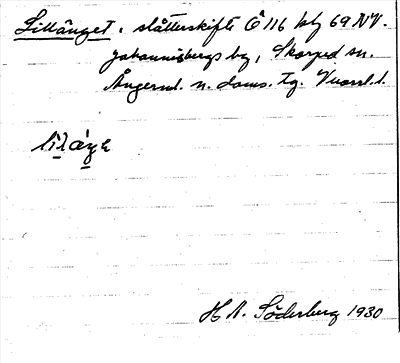 Lillänget, slåtterskifte Ö 116 kbl 69 NV.
Johannisbergs by, Skorped sn.
Ångerml. n. doms. tg. Vnorrl. l.
lilaŋe
H N. Söderberg 1930